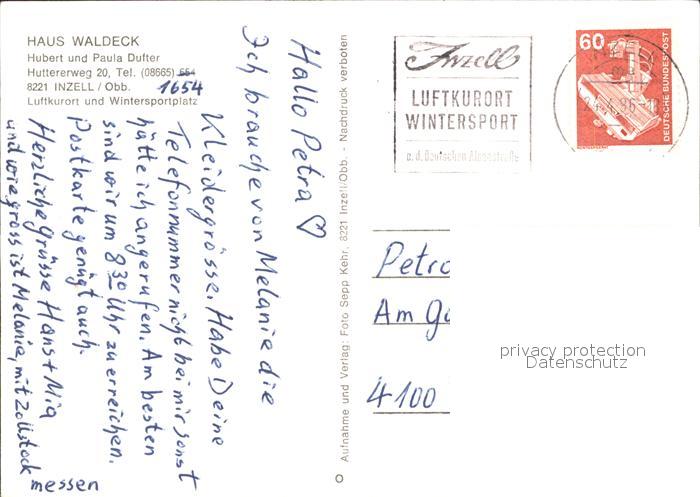 HAUS WALDECK
Hubert und Paula Dufter
Huttererweg 20, Tel. (08665) 654
1654
8221 INZELL / Obb.
Luftkurort und Wintersportplatz
Hallo Petra ♡
Ich brauche von Melanie die
Kleidergrösse. Habe Deine
Telefonnummer nicht bei mir sonst
hätte ich angerufen. Am besten
sind wir um 8 30 Uhr zu erreichen.
Postkarte genügt auch.
Herzliche Grüsse Hans + Mia
und wie gross ist Melanie, mit Zollstock
messen
Aufnahme und Verlag: Foto Sepp Kehr, 8221 Inzell/Obb. - Nachdruck verboten
Inzell
LUFTKURORT
WINTERSPORT
a. d. Deutschen Alpenstraße
60
DEUTSCHE BUNDESPOST
Petra
Am
4100
privacy protection
Datenschutz